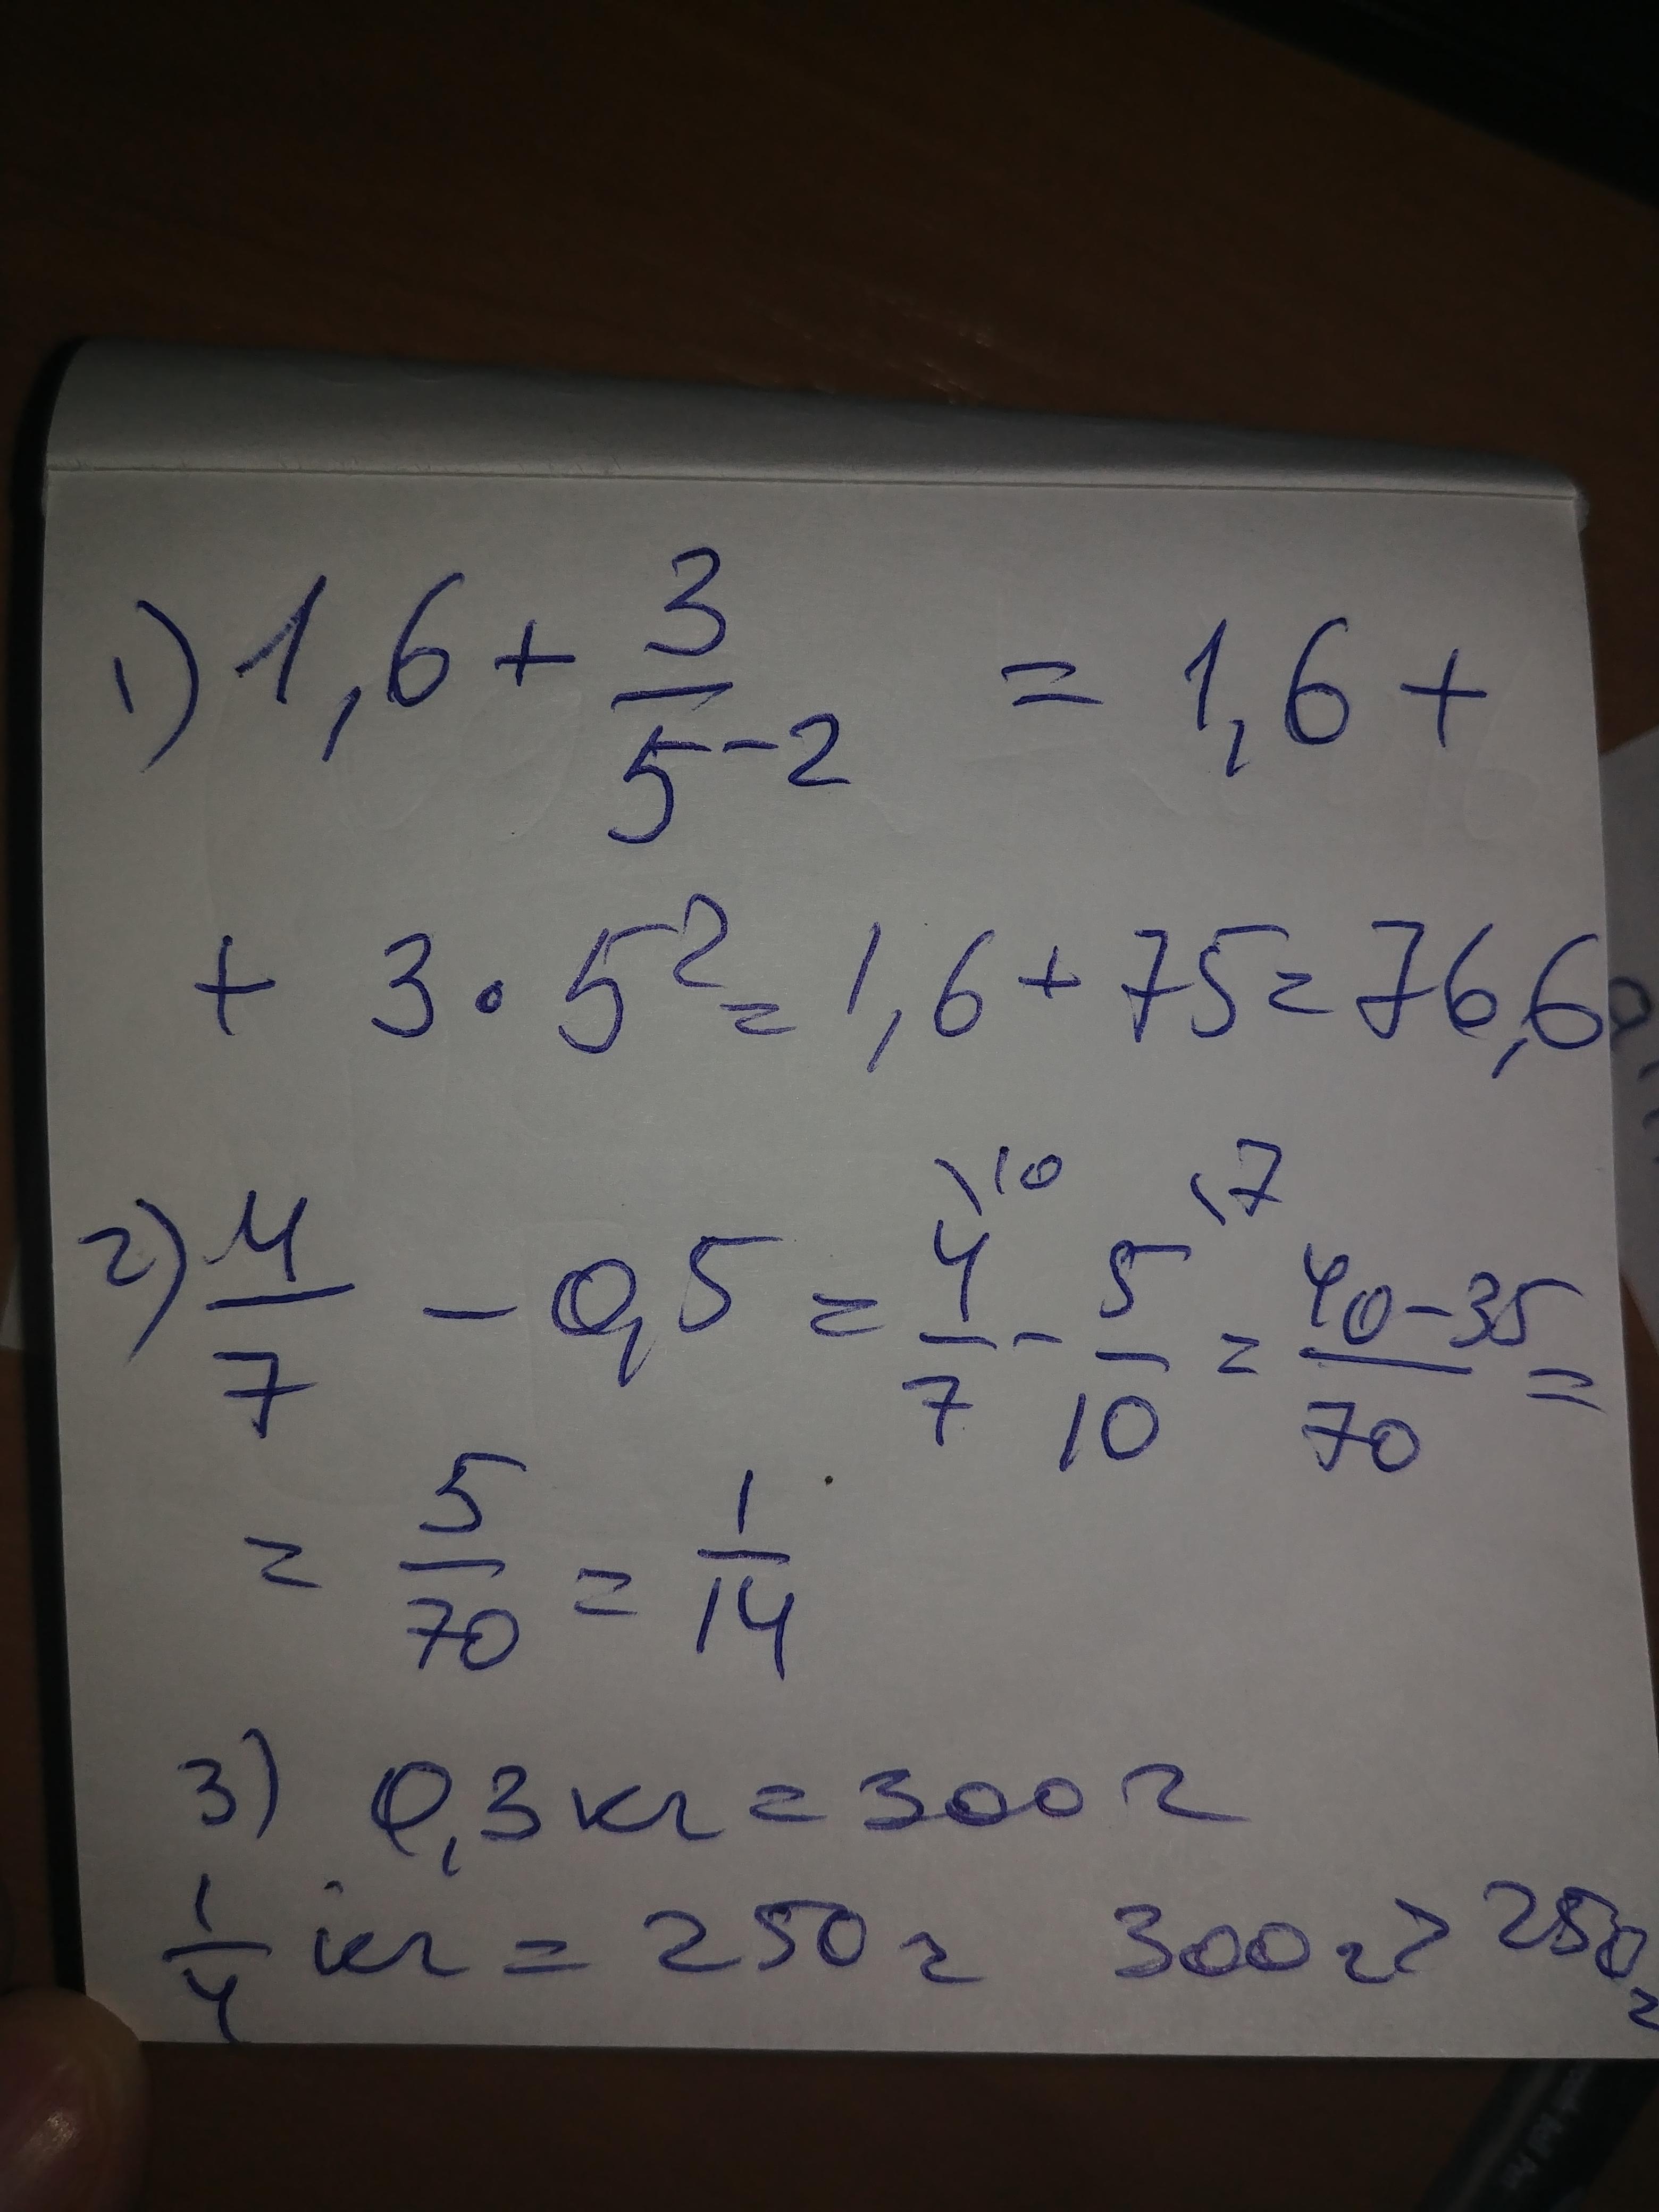 1) 1,6 + 3/5^-2 = 1,6 +
+ 3 · 5² = 1,6 + 75 = 76,6
2) 4/7 - 0,5 = 4/7 \10 - 5/10 \7 = 40-35/70 =
= 5/70 = 1/14
3) 0,3 кг = 300 г
1/4 кг = 250 г 300 г > 250 г